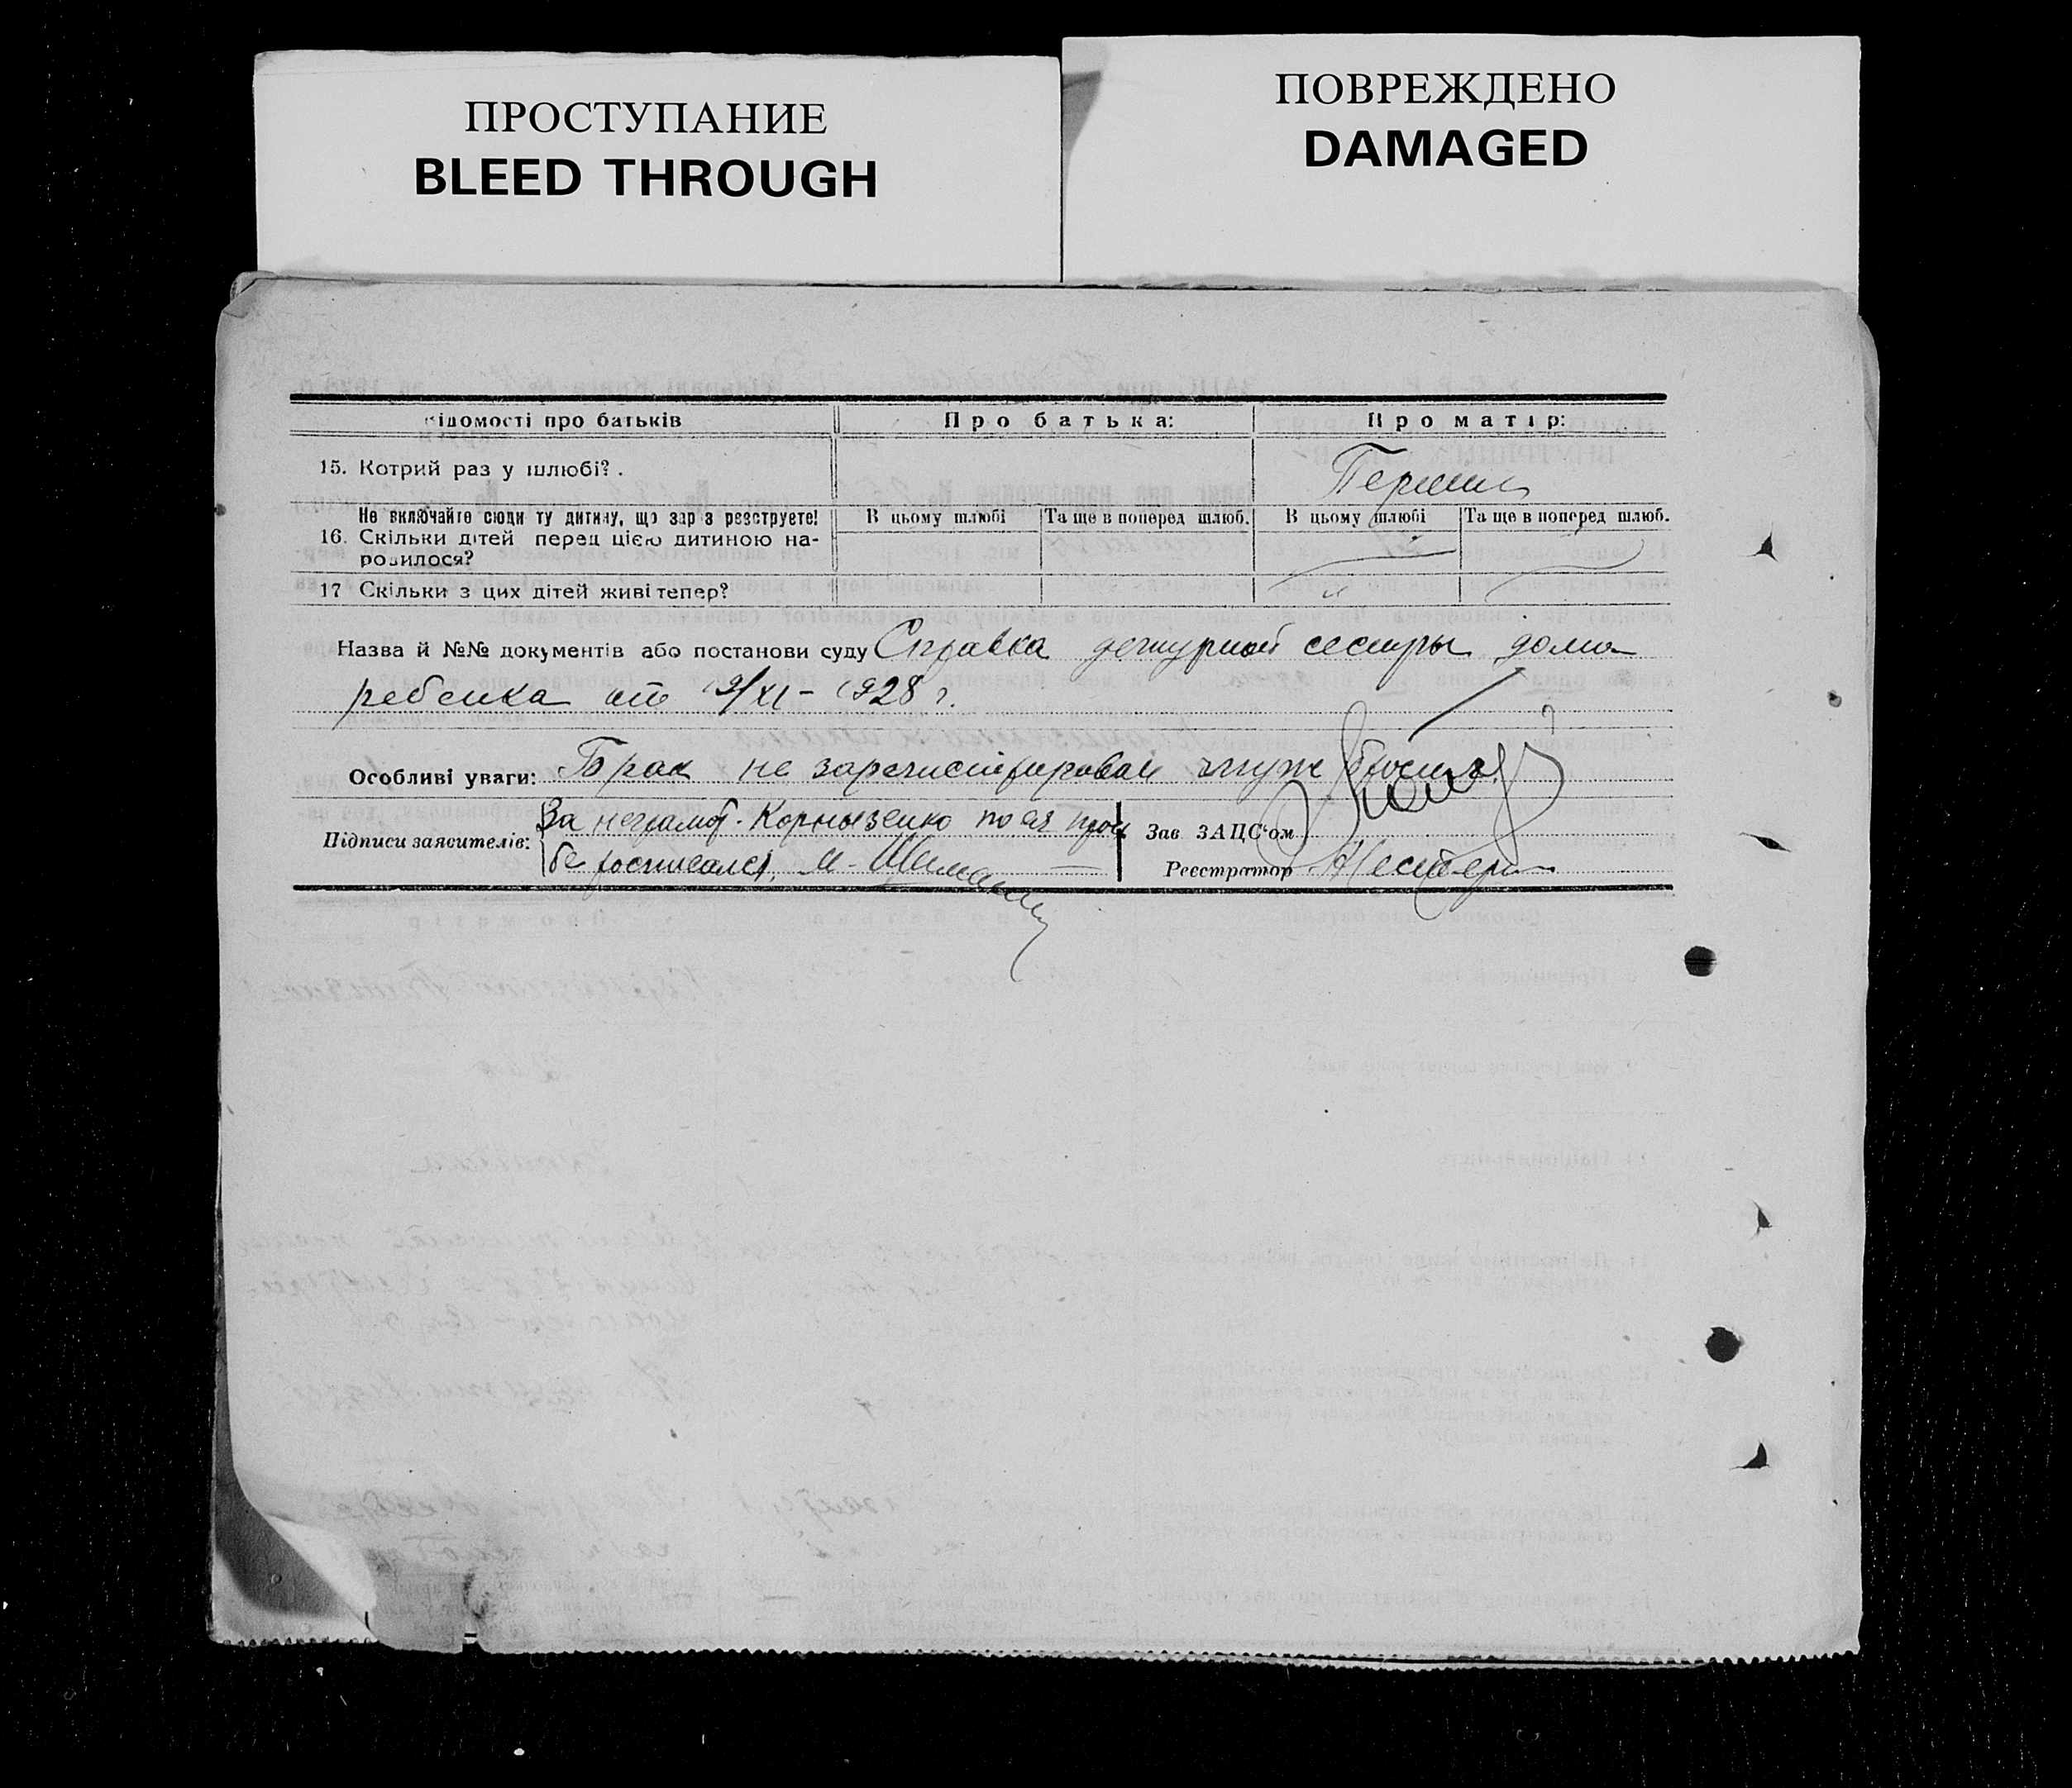 ПРОСТУПАНИЕ
BLEED THROUGH
ПОВРЕЖДЕНО
DAMAGED
ідомості про батьків Про батька: Про матір:
15. Котрий раз у шлюбі?. Першии
Не включайте сюди ту дитину, що зараз реєструєте! В цьому шлюбі Та ще в поперед шлюб. В цьому шлюбі Та ще в поперед шлюб.
16. Скільки дітей перед цією дитиною на-
родилося?
17 Скільки з цих дітей живі тепер?
Назва й №№ документів або постанови суду Справка дежурной сестры дома
ребенка от 19/XI - 1928 г.
Особливі уваги: Брак не зарегистрирован муж бросил
Підписи заявителів: За неграмот. Корнызенко по ея прозь
бе росписался. Зав ЗАЦС'ом
Реєстратор